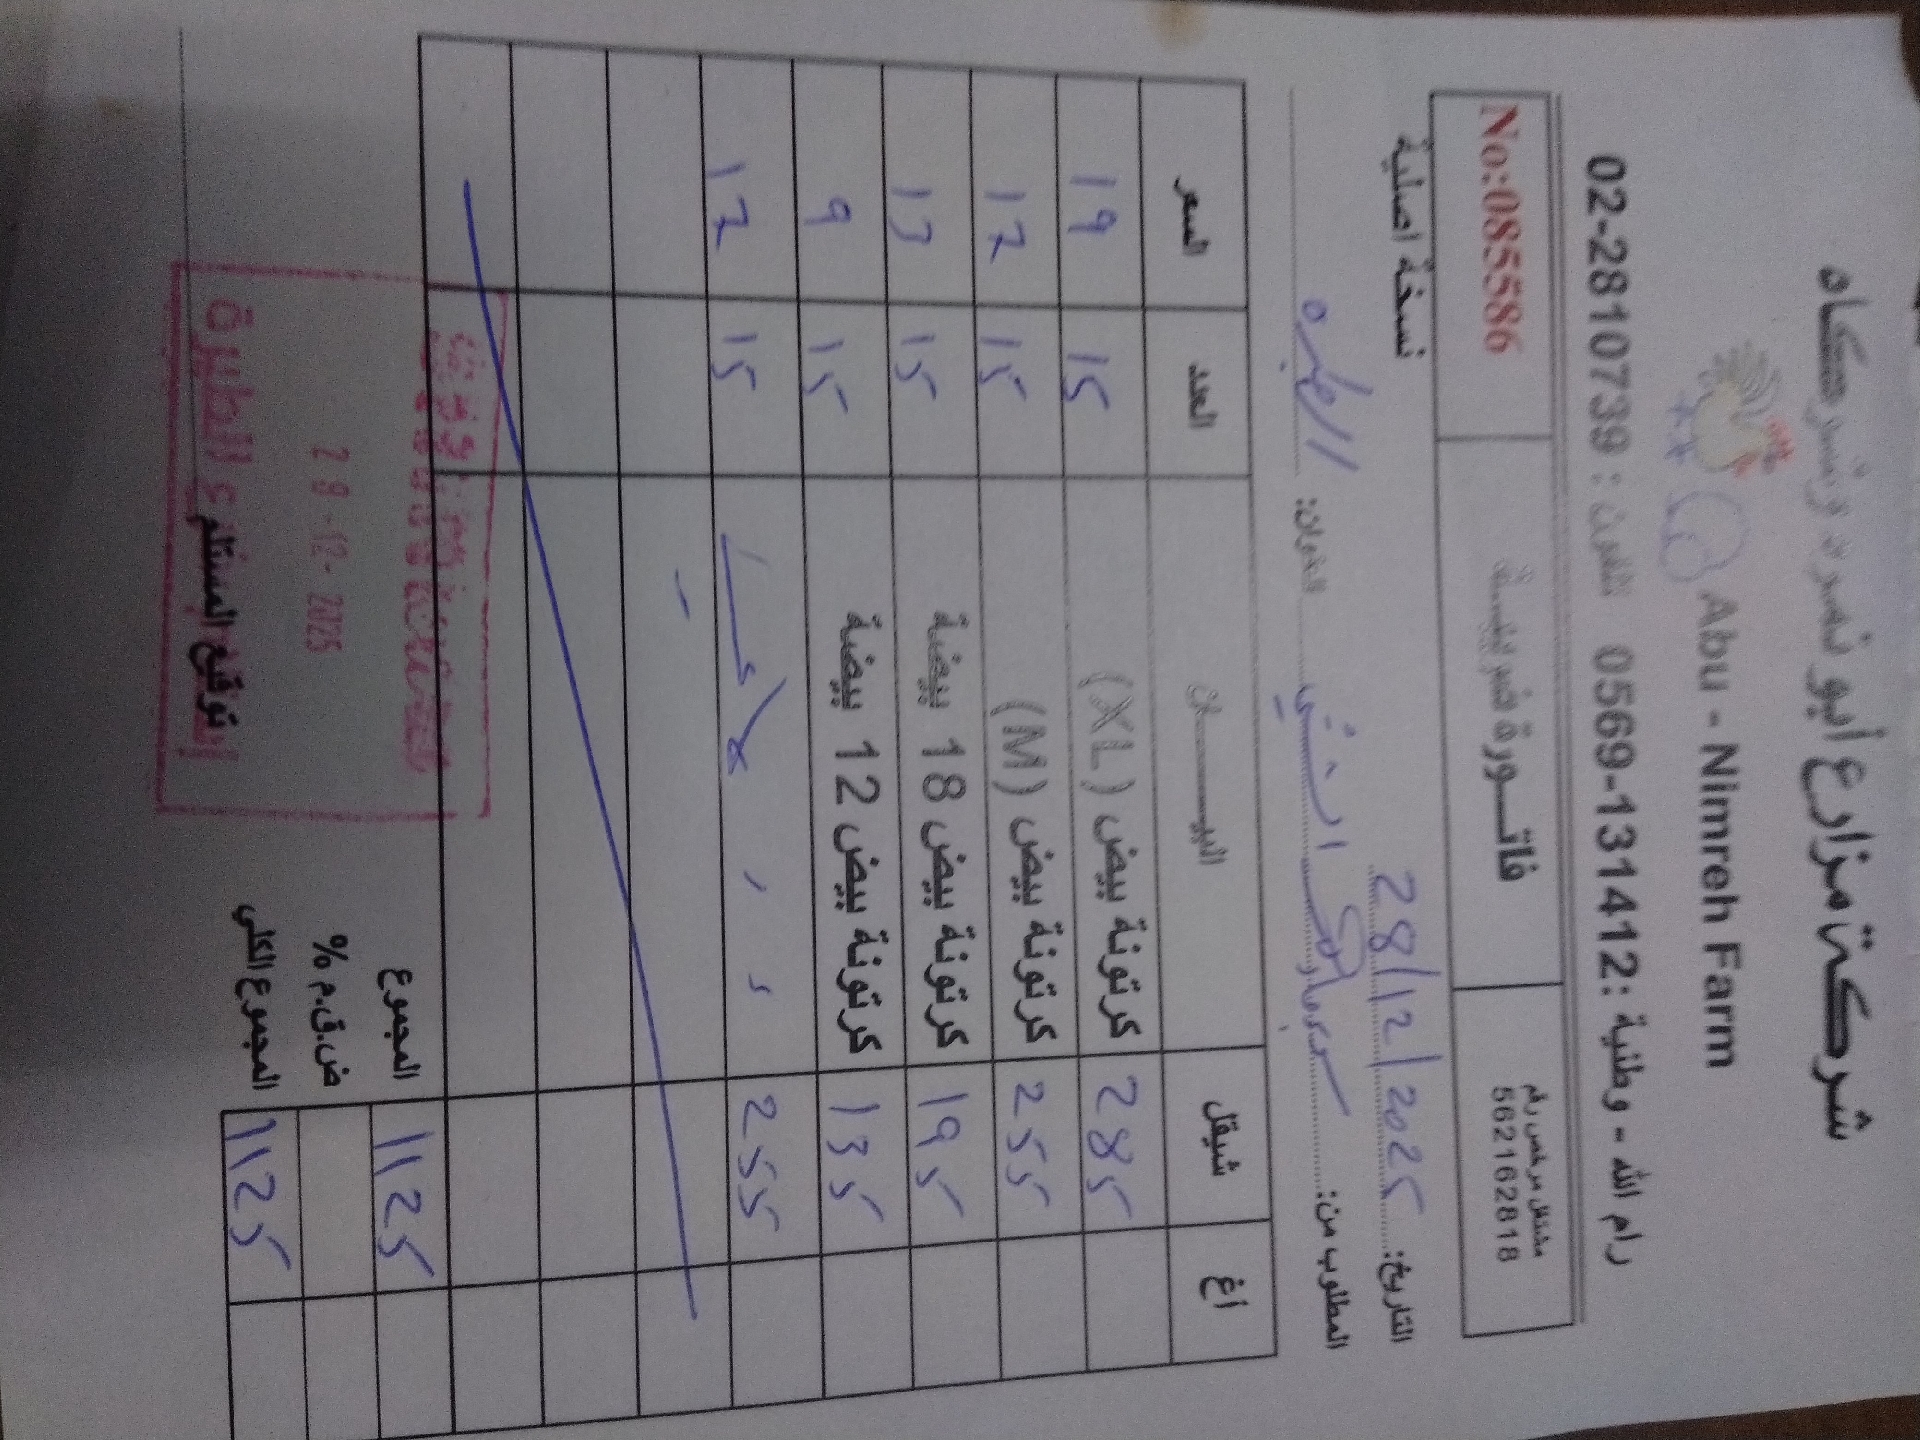 شركة مزارع أبو نمرة وشركاه
Abu - Nimreh Farm
رام الله - وطنية : 0569-131412 تلفون : 02-2810739
مشتغل مرخص رقم 562162818
فاتـورة ضريبيـة
No:085586
التاريخ: 28/12/2025 نسخة اصلية
المطلوب من: العنوان: الطيره
اغ شيقل البيـــان العدد السعر
285 كرتونة بيض (XL) 15 19
255 كرتونة بيض (M) 15 17
195 كرتونة بيض 18 بيضة 15 13
135 كرتونة بيض 12 بيضة 15 9
255 15 17
المجموع 1125
ض.ق.م %
المجموع الكلي 1125
28-12-2025
فرع الطيرة
توقيع المستلم